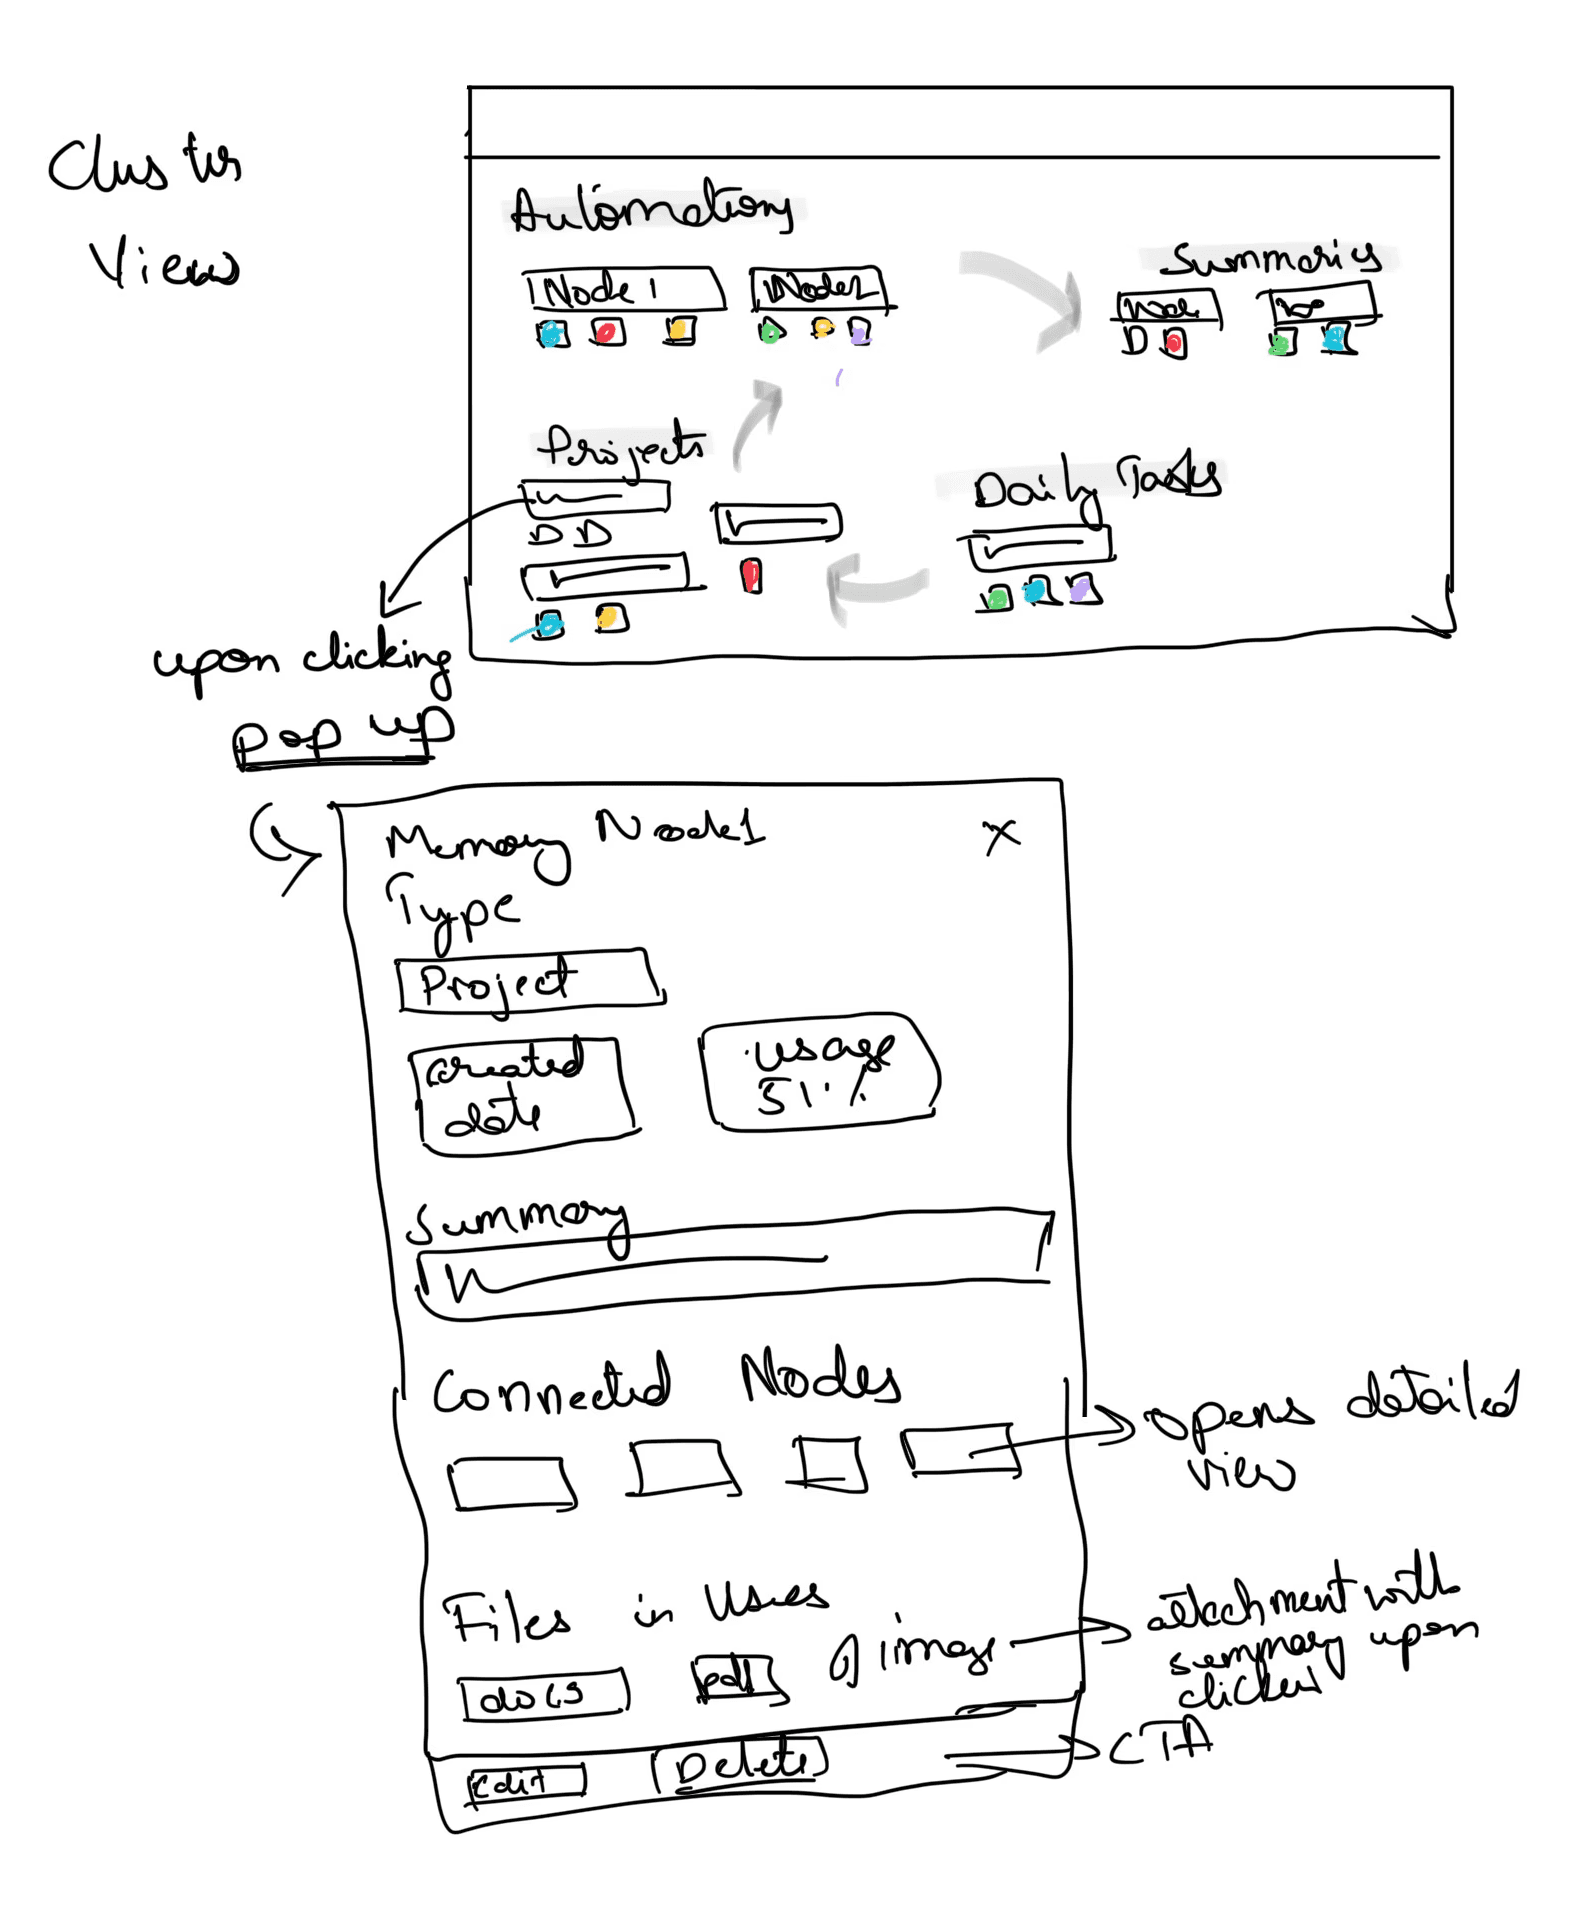 Cluster
View
Automations
Node 1
Node2
Summaries
Node
Projects
Daily Tasks
upon clicking
pop up
Memory Node1
X
Type
Project
created
date
usage
51%
Summary
Connected Nodes
opens detailed
view
Files in Uses
docs
pdf
image
attachment with
summary upon
clicked
CTA
Edit
Delete